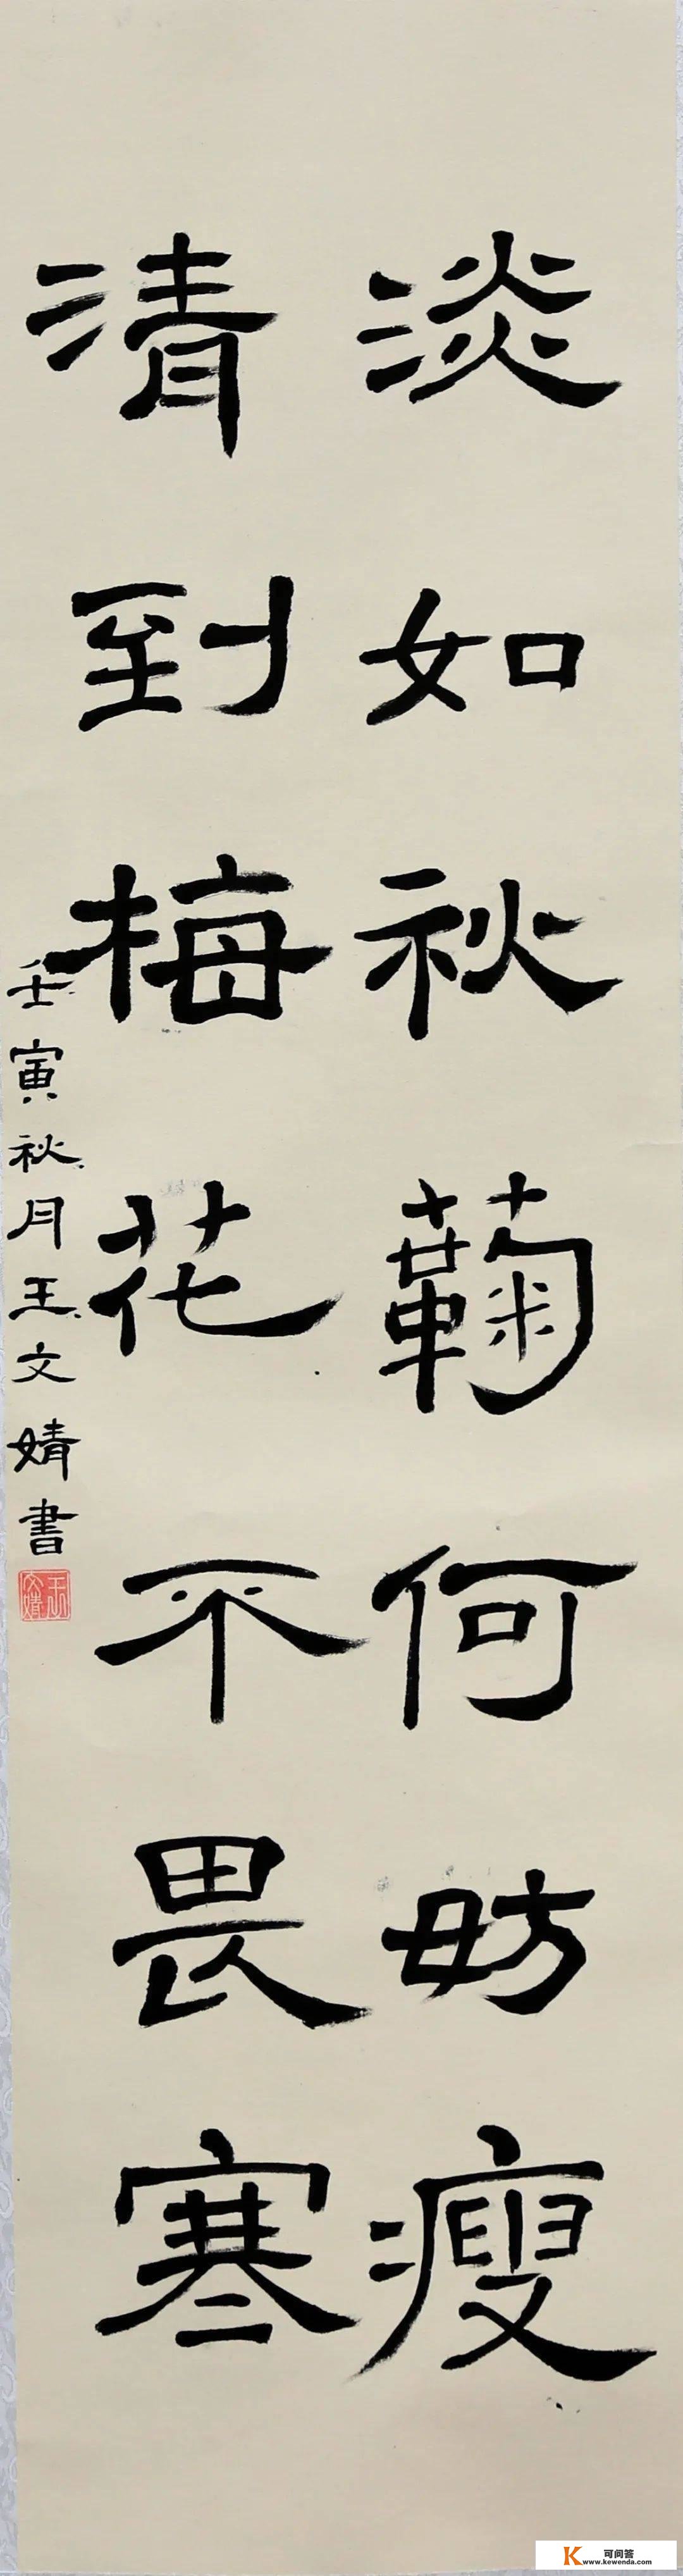 淡如秋鞠何妨瘦
清到梅花不畏寒
壬寅秋月王文婧書
王文婧
可问答
www.kewenda.com